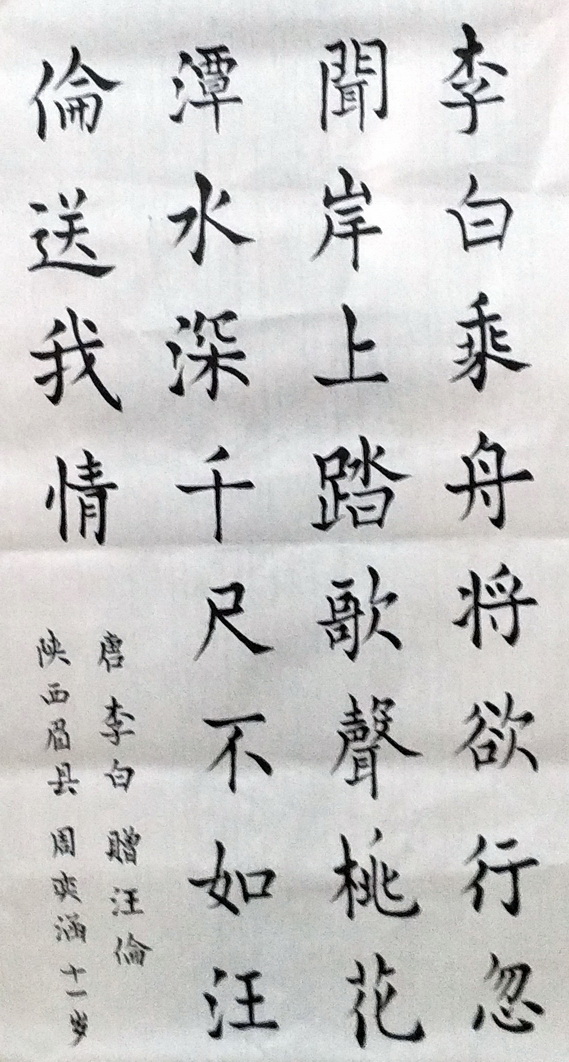 李白乘舟将欲行忽
聞岸上踏歌聲桃花
潭水深千尺不如汪
倫送我情
唐李白贈汪倫
陕西眉县周奕涵十一岁